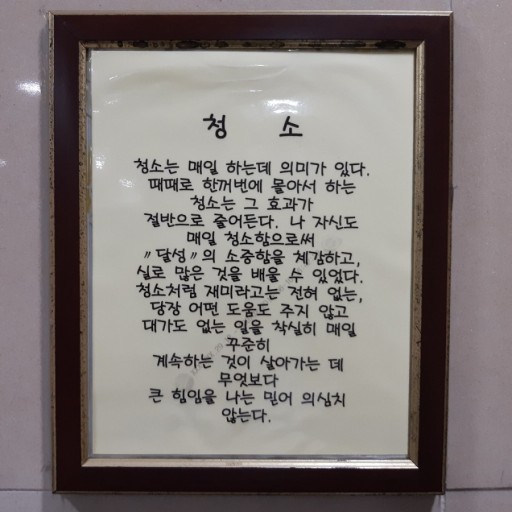 청 소
청소는 매일 하는데 의미가 있다.
때때로 한꺼번에 몰아서 하는
청소는 그 효과가
절반으로 줄어든다. 나 자신도
매일 청소함으로써
〃달성〃의 소중함을 체감하고,
실로 많은 것을 배울 수 있었다.
청소처럼 재미라고는 전혀 없는,
당장 어떤 도움도 주지 않고
대가도 없는 일을 착실히 매일
꾸준히
계속하는 것이 살아가는 데
무엇보다
큰 힘임을 나는 믿어 의심치
않는다.